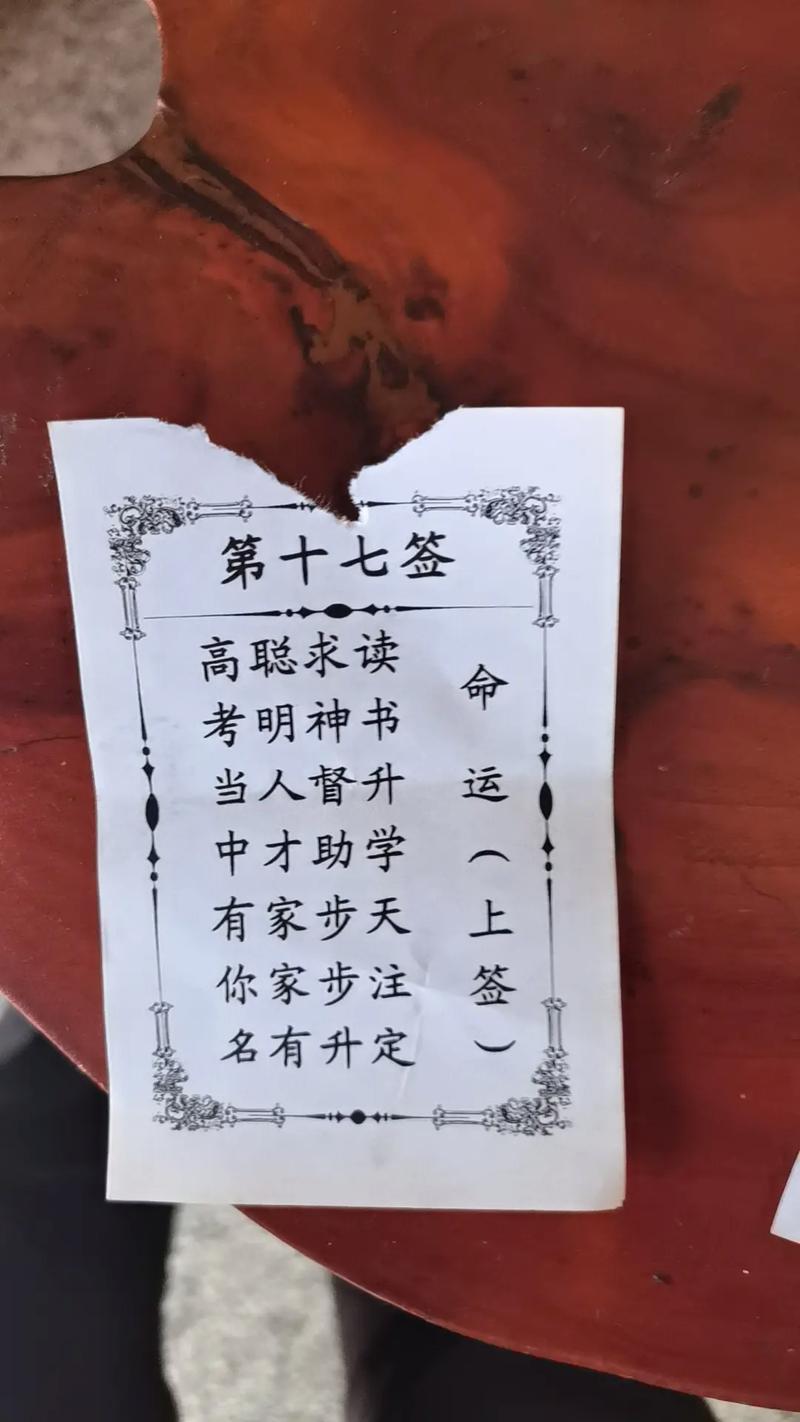 第十七签
命运（上签）
读书升学天注定
求神督助步步升
聪明人才家家有
高考当中有你名